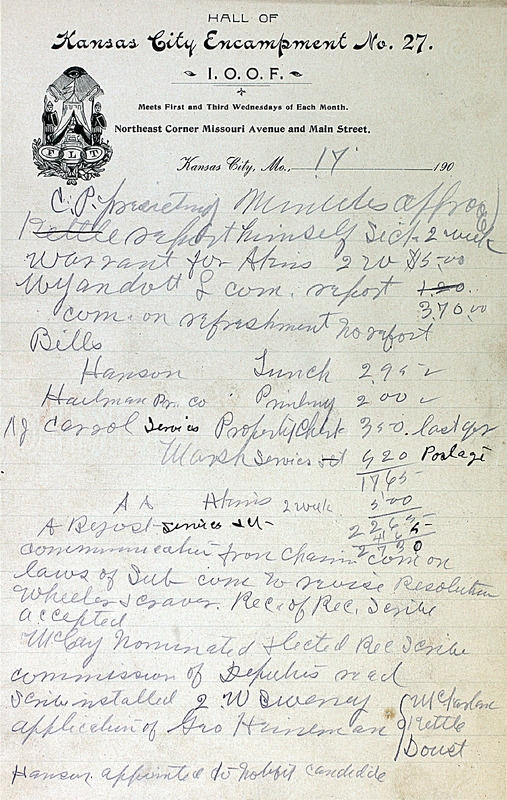 HALL OF
Kansas City Encampment No. 27.
I. O. O. F.
Meets First and Third Wednesdays of Each Month.
Northeast Corner Missouri Avenue and Main Street.
F L T
Kansas City, Mo., 17 190
C. P. presecting Minutes approved
Kettle report himself Sick 2 week
Warrant for Akins 2 w $5.00
Wyandott & com. report 1.20
com. on refreshment no report 3.70
Bills
Hanson Lunch 2.95
Hailman Pr. co Printing 2 00
Carrol Services Property Clerk 3 50. last qr
Marsh Services 9 20 Postage
1765
A A Akins 2 week 5 00
A Repost Services 226 5
2 7 3 0
communication from Chairm com on
laws of Sub com to revise Resolution
Wheeler & craver. Rec. of Rec. Scribe
accepted
McCay Nominated Elected Rec Scribe
commission of Deputies read
Scribe installed W Swaney McFarlane
application of Geo Heineman Kettle
Doust
Hanson appointed to notify candidate